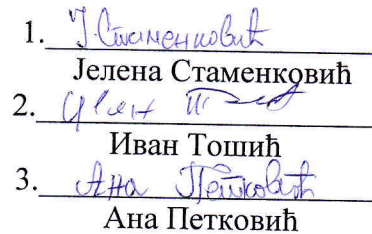 1. Ј. Стаменковић
Јелена Стаменковић
2. Иван Тошић
Иван Тошић
3. Ана Петковић
Ана Петковић